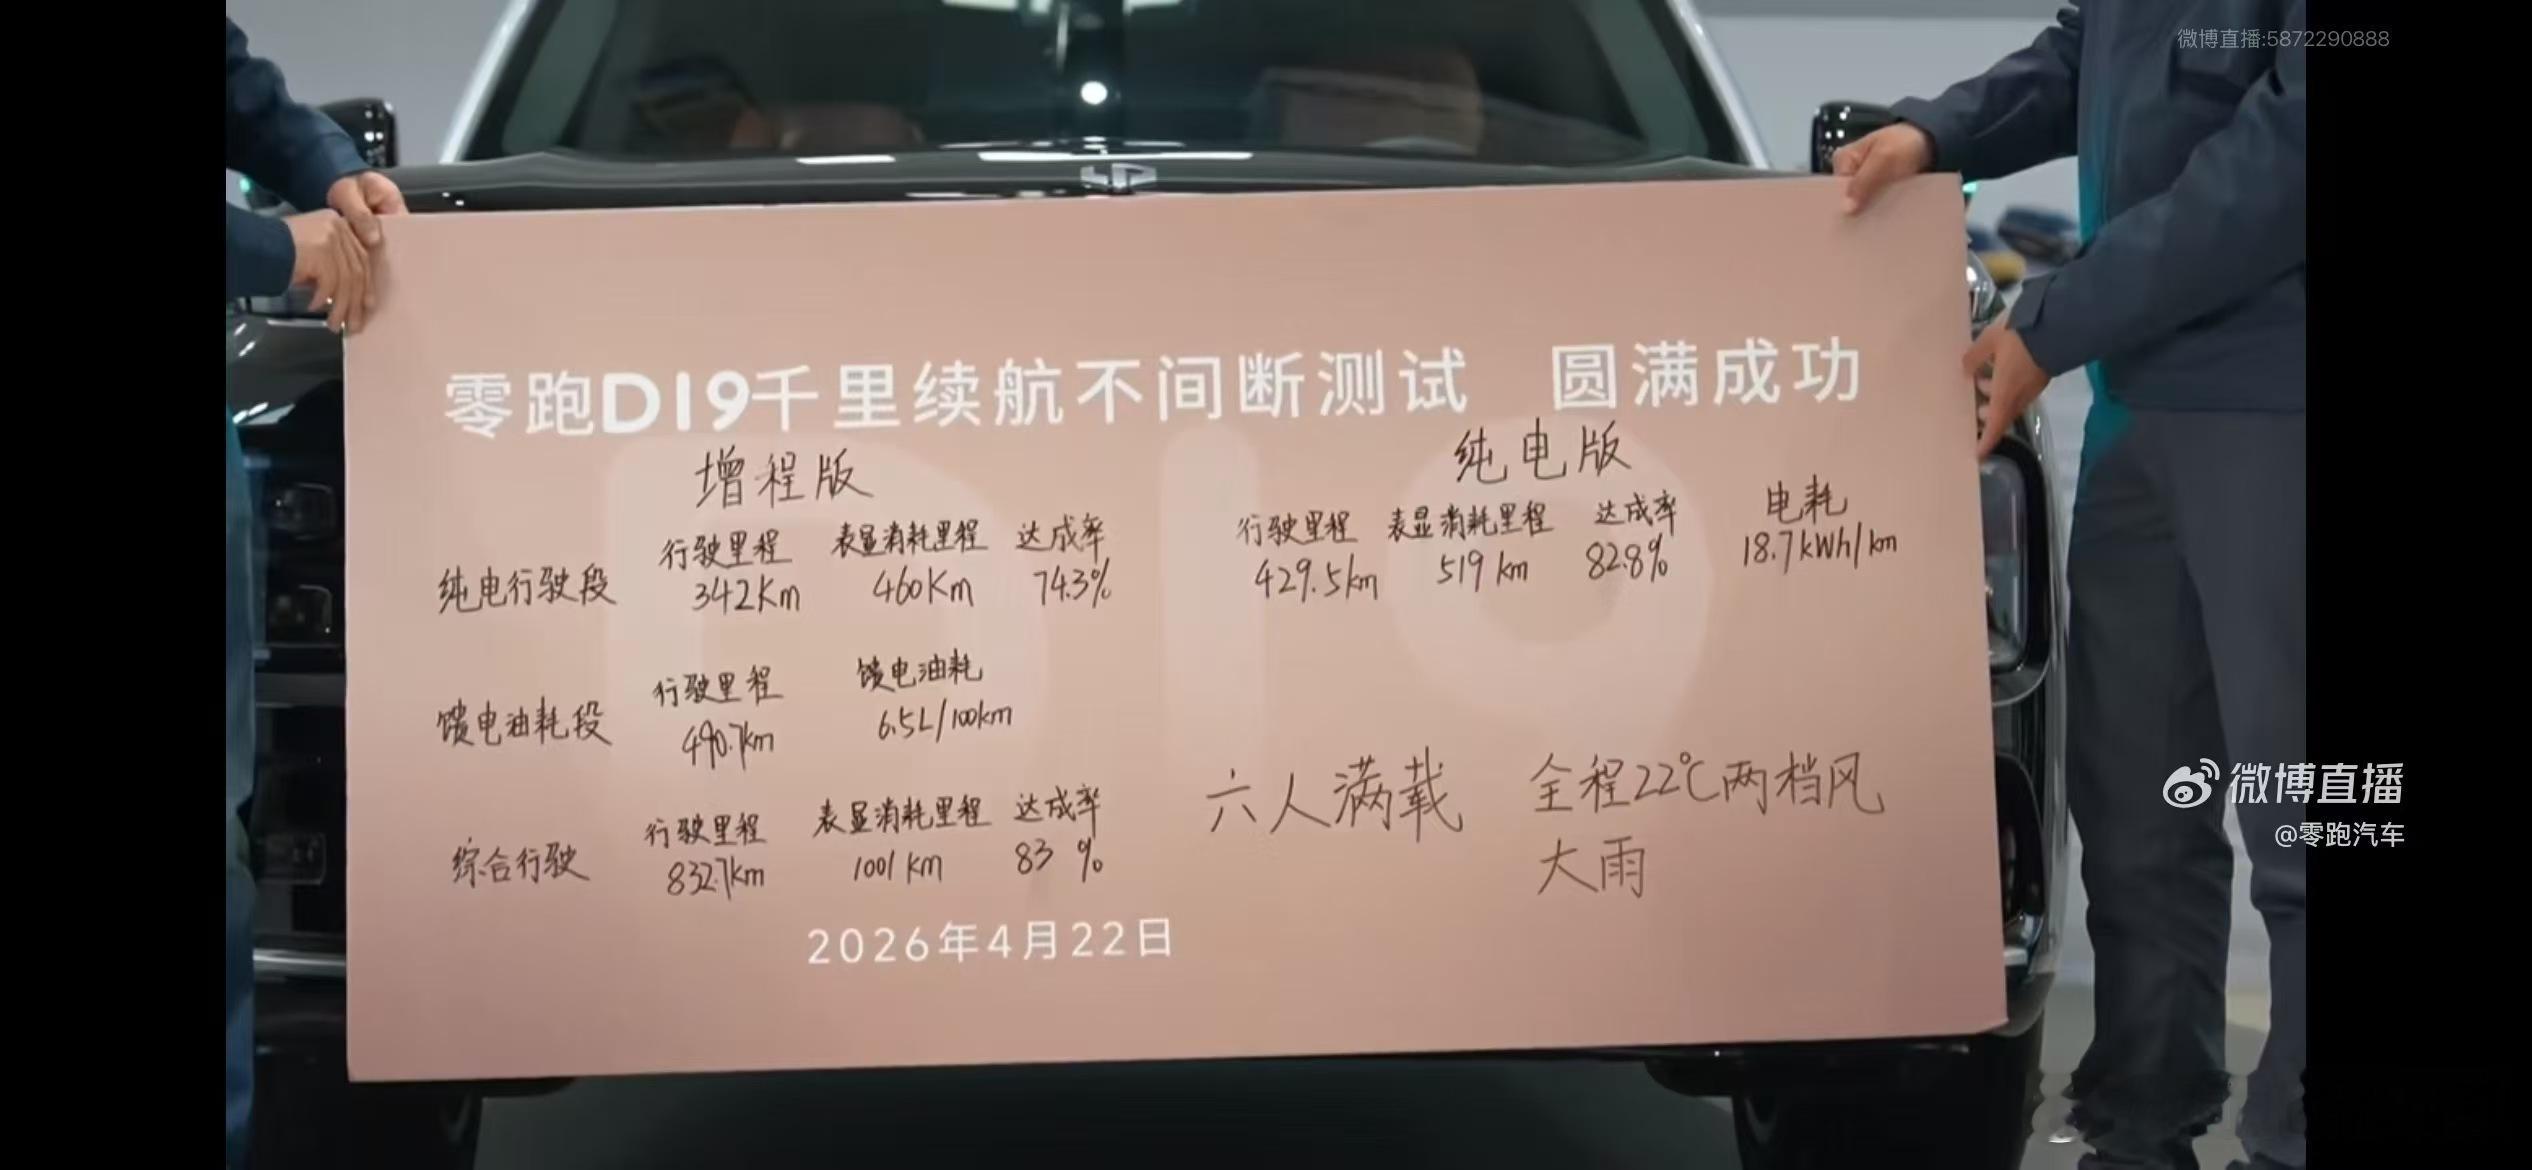 微博直播:5872290888
零跑D19千里续航不间断测试 圆满成功
增程版
行驶里程 表显消耗里程 达成率
纯电行驶段 342Km 460Km 74.3%
行驶里程 馈电油耗
馈电油耗段 490.7km 6.5L/100km
行驶里程 表显消耗里程 达成率
综合行驶 832.7km 1001km 83%
纯电版
行驶里程 表显消耗里程 达成率 电耗
429.5km 519km 82.8% 18.7kWh/km
六人满载 全程22℃两档风
大雨
2026年4月22日
微博直播
@零跑汽车